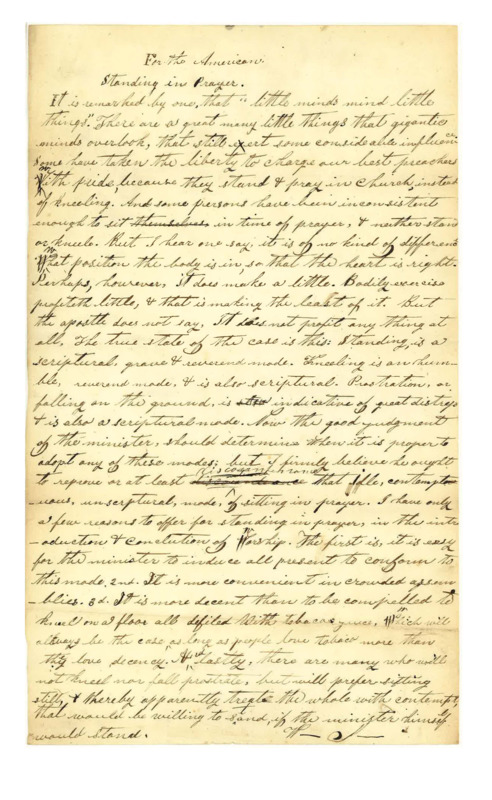 For the American.
Standing in Prayer.
It is remarked by one, that "little minds mind little
things." There are a great many little things that gigantic
minds overlook, that still exert some considerable influence.
Some have taken the liberty to charge our best preachers
With pride, because they stand & pray in Church, instead
of kneeling. And some persons have been inconsistent
enough to sit themselves in time of prayer, & neither stand
or kneel. But I hear one say, it is of no kind of difference
What position the body is in, so that the heart is right.
Perhaps, however, It does make a little. Bodily exercise
profiteth little, & that is making the least of it. But
the apostle does not say, It does not profit any thing at
all. The true state of the case is this: Standing, is a
scriptural, grave & reverend mode. Kneeling is an hum-
ble, reverend mode, & is also scriptural. Prostration, or
falling on the ground, is also indicative of great distress
& is also a scriptural mode. Now the good judgment
of the minister, should determine When it is proper to
adopt any of these modes; but I firmly believe he ought
to reprove or at least discountenance that Idle, contempt-
uous, unscriptural, mode, of sitting in prayer. I have only
a few reasons to offer for standing in prayer, in the intr
-oduction & conclution of Worship. The first is, it is easy
for the minister to induce all present to conform to
this mode. 2nd. It is more convenient in crowded assem
-blies. 3d. It is more decent than to be compelled to
kneel on a floor all defiled With tobaco yuice, Which will
allways be the case as long as people love tobaco more than
they love decency. And lastly, there are many who will
not kneel nor fall prostrate, but will prefer sitting
still, & thereby apparently treate the whole with contempt,
that would be willing to stand, if the minister himself
would stand.